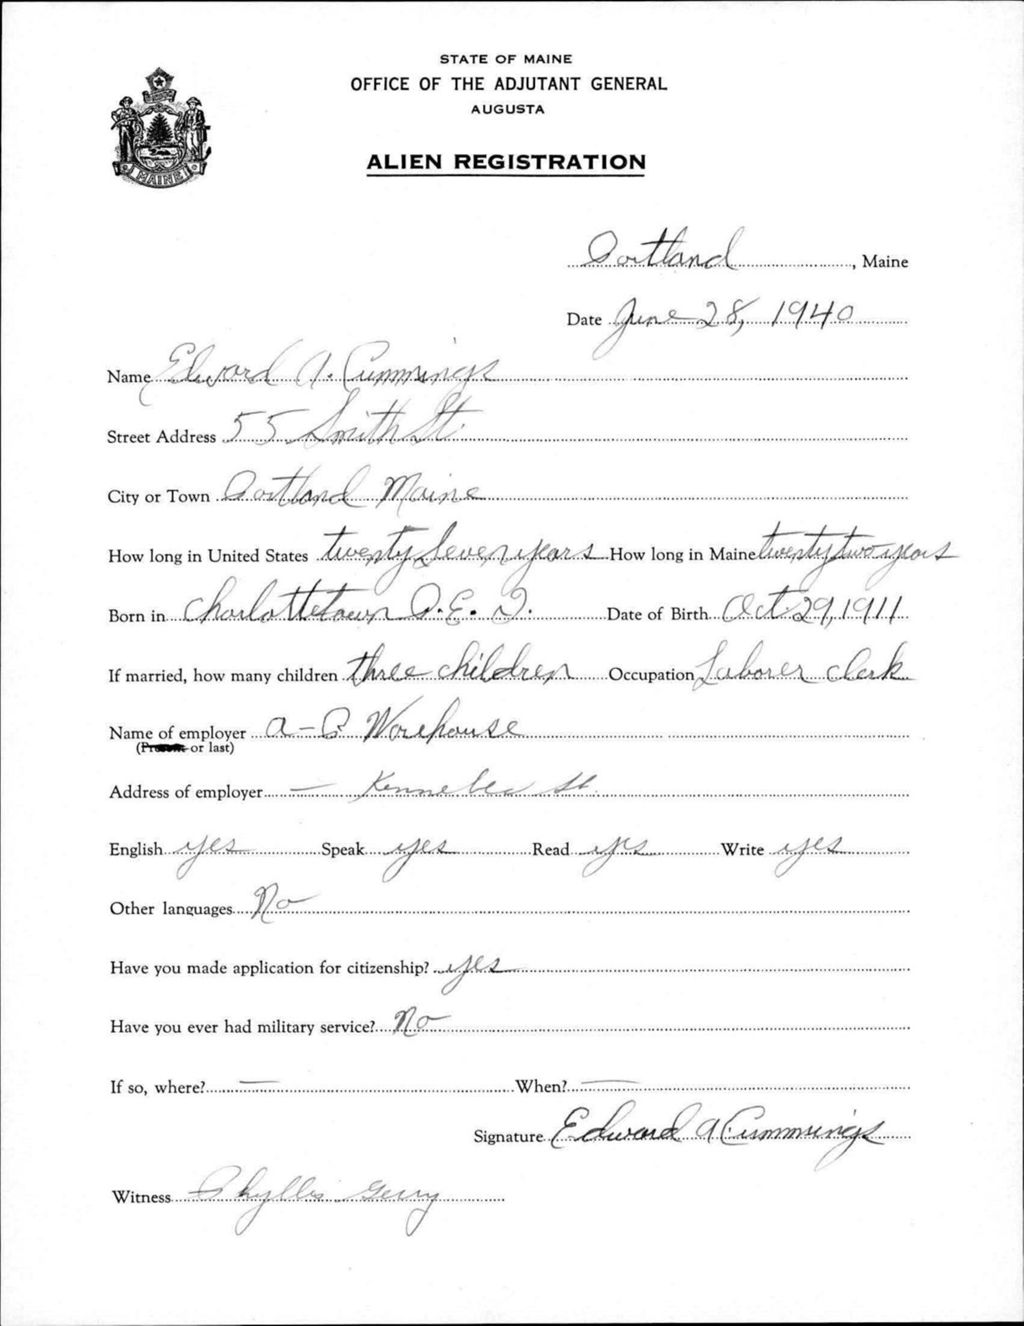 STATE OF MAINE
OFFICE OF THE ADJUTANT GENERAL
AUGUSTA
ALIEN REGISTRATION
MAINE
Portland, Maine
Date June 28, 1940
Name Edward A. Cummings
Street Address 55 Smith St.
City or Town Portland Maine
How long in United States twenty seven years How long in Maine twenty two years
Born in Charlottetown P.E.I. Date of Birth Oct 29, 1911
If married, how many children three children Occupation Laborer Clerk
Name of employer A-P Warehouse
(Present or last)
Address of employer — Kennebec St.
English yes Speak yes Read yes Write yes
Other languages No
Have you made application for citizenship? yes
Have you ever had military service? No
If so, where? — When? —
Signature Edward A Cummings
Witness Phyllis Gerry